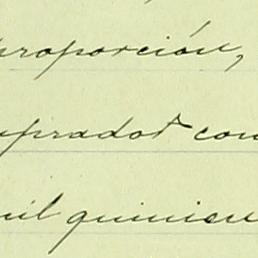 proporción,
uprador con
mil quinien